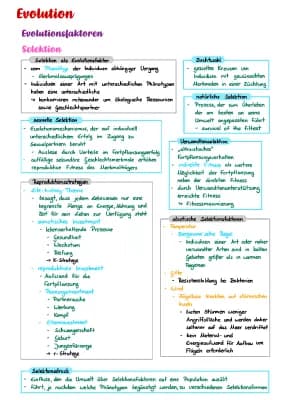 Evolution
Evolutionsfaktoren
Selektion
Selektion als Evolutionsfaktor
- vom Phänotyp der Individuen abhängiger Vorgang
- Merkmalsausprägungen
- Individuen einer Art mit unterschiedlichen Phänotypen
haben eine unterschiedliche
→ konkurrieren miteinander um ökologische Ressourcen
sowie Geschlechtspartner
sexuelle Selektion
- Evolutionsmechanismus, der auf individuell
unterschiedlichem Erfolg im Zugang zu
Sexualpartnern beruht
- Auslese durch Vorteile im Fortpflanzungserfolg
auffällige sekundäre Geschlechtsmerkmale erhöhen
reproduktive Fitness des Merkmalträgers
Reproduktionsstrategien
- Life-history Theorie
- besagt, dass jedem Lebewesen nur eine
begrenzte Menge an Energie, Nahrung und
Zeit für sein Leben zur Verfügung steht
- somatisches Investment
- lebenserhaltende Prozesse
- Gesundheit
- Wachstum
- Reifung
→ K-Strategie
- reproduktives Investment
- Aufwand für die
Fortpflanzung
- Paarungsinvestment
- Partnersuche
- Werbung
- Kampf
- Elterninvestment
- Schwangerschaft
- Geburt
- Jungenfürsorge
→ r-Strategie
Zuchtwahl
- gezieltes Kreuzen von
Individuen mit gewünschten
Merkmalen in einer Züchtung
natürliche Selektion
- Prozess, der zum Überleben
der am besten an seine
Umwelt angepassten führt
- survival of the fittest
Verwandtenselektion
- "altruistisches"
Fortpflanzungsverhalten
- indirekte Fitness als weitere
Möglichkeit der Fortpflanzung
neben der direkten Fitness
- durch Verwandtenunterstützung
erreichte Fitness
→ Fitnessmaximierung
abiotische Selektionsfaktoren
- Temperatur
- Bergmannsche Regel
- Individuen einer Art oder naher
verwandter Arten sind in kalten
Gebieten größer als in warmen
Regionen
- Gifte
- Resistenzbildung bei Bakterien
- Wind
- flügellose Insekten auf stürmischen
Inseln
- bieten Stürmen weniger
Angriffsfläche und werden daher
seltener auf das Meer verdriftet
- kein Material- und
Energieaufwand für Aufbau von
Flügeln erforderlich
Selektionsdruck
- Einfluss, den die Umwelt über Selektionsfaktoren auf eine Population ausübt
- führt, je nachdem welche Phänotypen begünstigt werden, zu verschiedenen Selektionsformen